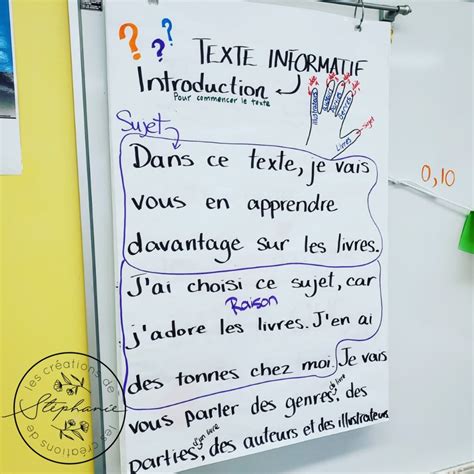 ???
TEXTE INFORMATIF
Introduction
Pour commencer le texte
Illustrateurs
Genres
Livres
Sujet
Sujet
Dans ce texte, je vais
vous en apprendre
davantage sur les livres.
J'ai choisi ce sujet, car
Raison
j'adore les livres. J'en ai
des tonnes chez moi. Je vais
vous parler des genres, des
d'un livre
parties, des auteurs et des illustrateurs
0,10
Les créations de
Stéphanie
les créations de